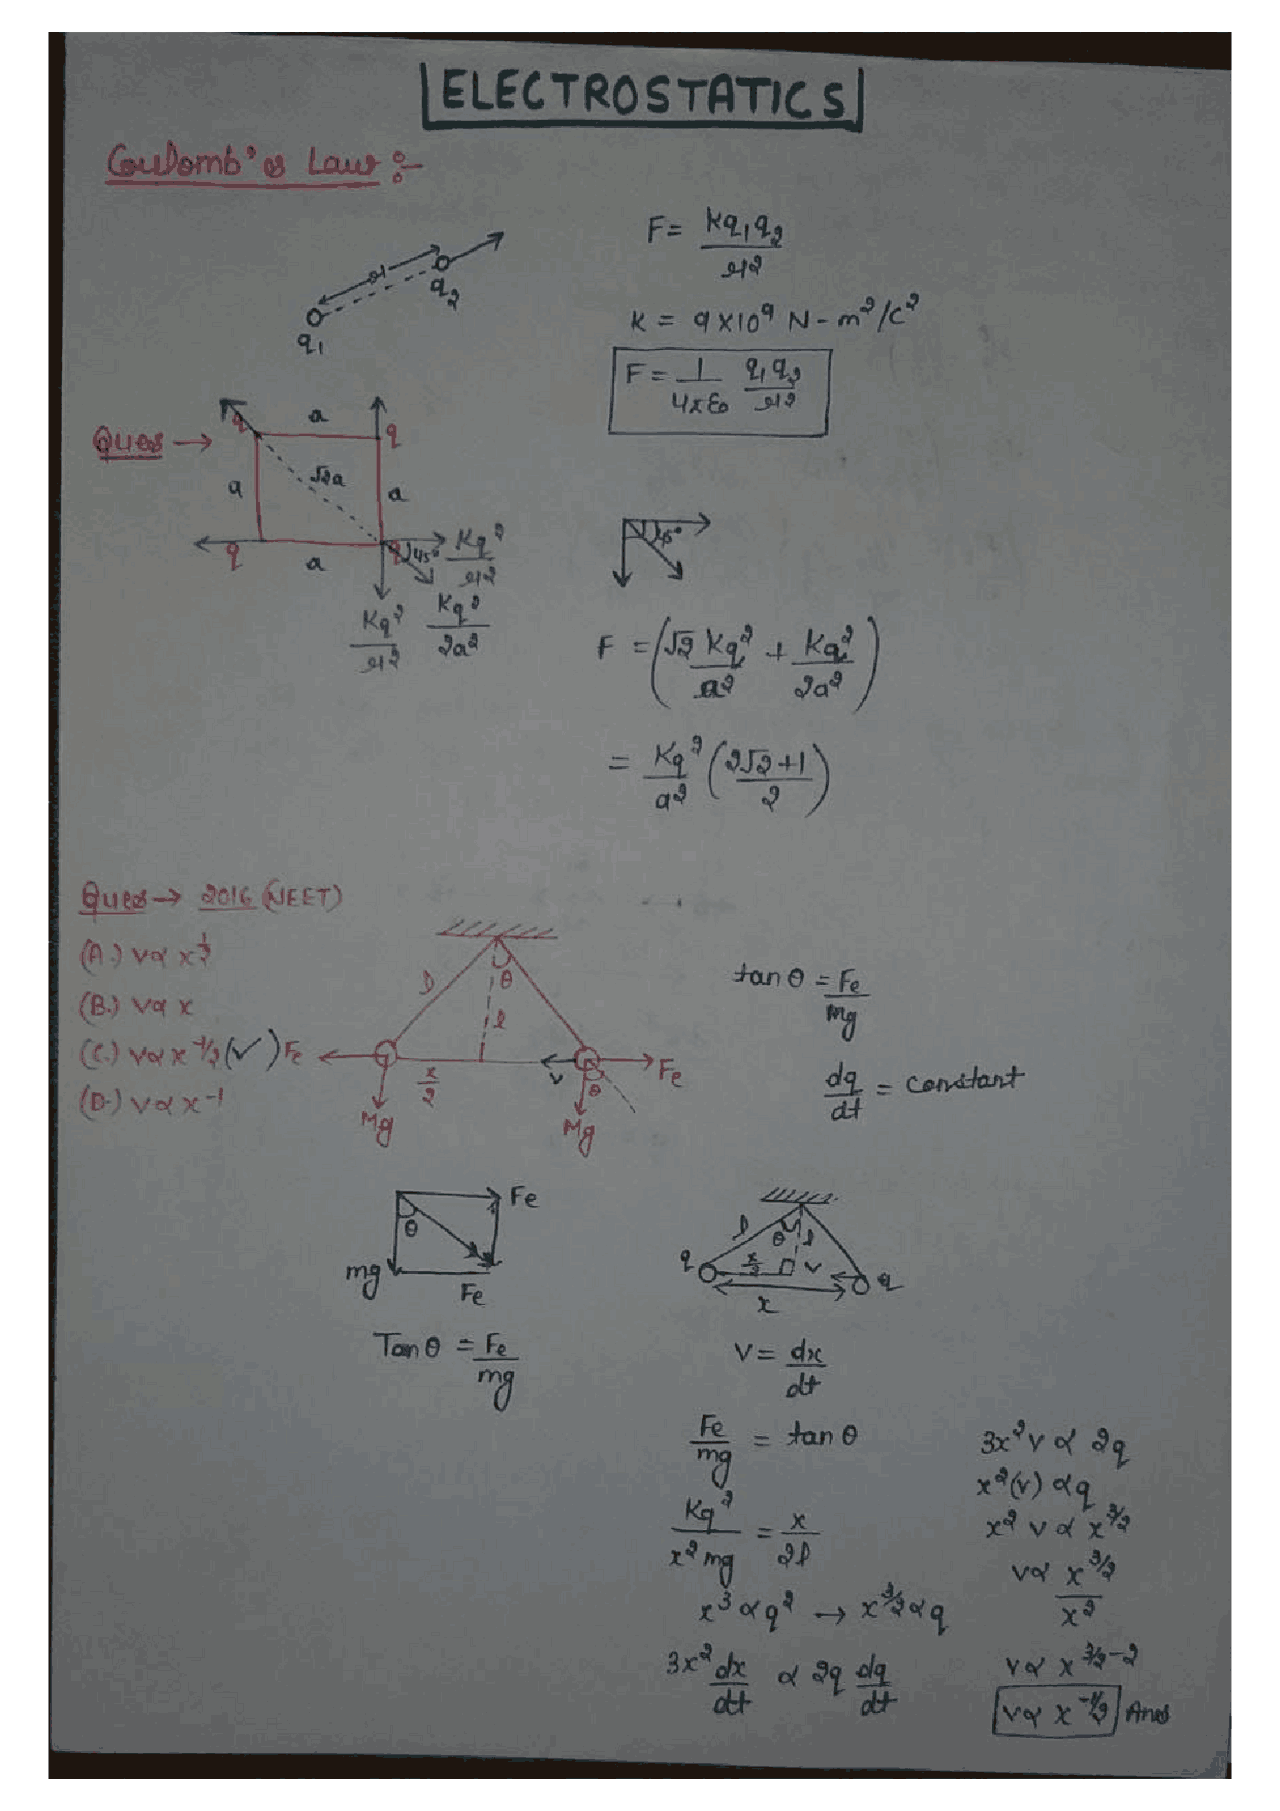 ELECTROSTATICS
Coulomb's Law :-
F = kq₁q₂
r²
r
q₂
q₁
K = 9×10⁹ N-m²/C²
F = 1 q₁q₂
4πε₀ r²
Ques →
q a q
a √2a a
q a q 45° Kq²
r²
45°
Kq² Kq²
r² 2a²
F = (√2 Kq² + Kq²)
a² 2a²
= Kq² (2√2+1)
a² 2
Ques → 2016 (NEET)
(A.) v∝ x^½
(B.) v∝ x
(C.) v∝ x^-1/2 (✓)
(D.) v∝ x⁻¹
l θ
l
Fe x v Fe
2 θ
Mg Mg
tan θ = Fe
mg
dq = constant
dt
Fe
θ
mg
Fe
Tan θ = Fe
mg
l θ l
q x v q
2
x
V = dx
dt
Fe = tan θ
mg
Kq² = x
x² mg 2l
x³ ∝ q² → x^3/2 ∝ q
3x² dx ∝ 2q dq
dt dt
3x² v ∝ 2q
x² (v) ∝ q
x² v ∝ x^3/2
v∝ x^3/2
x²
v∝ x^3/2-2
v∝ x^-1/2 Ans